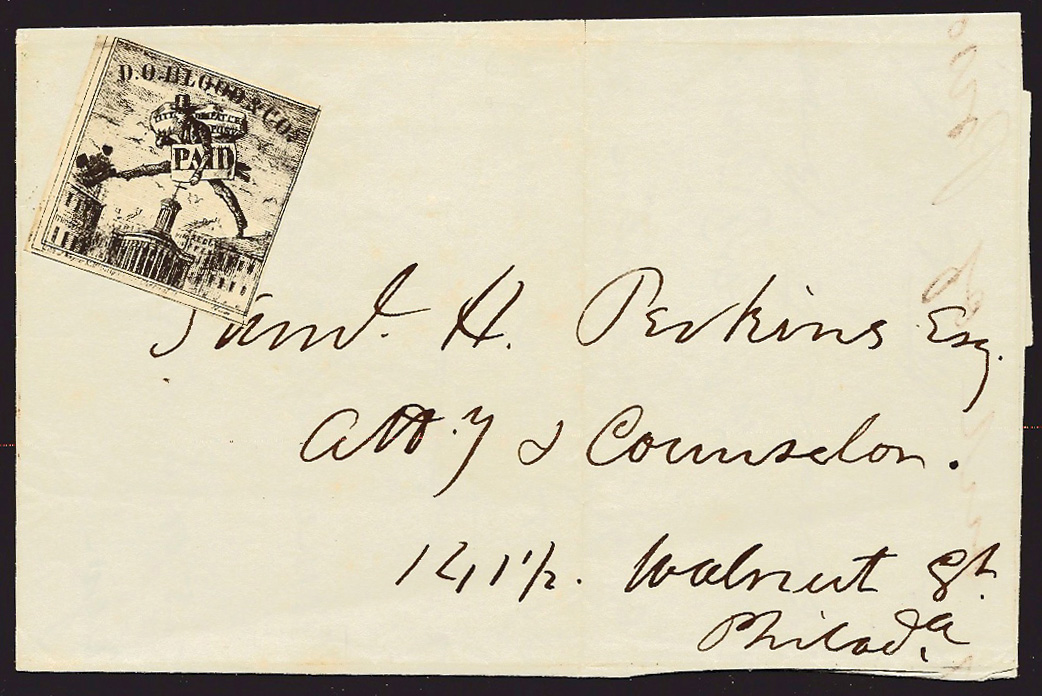 D.O.BLOOD & CO'S
CITY DESPATCH
POST
PAID
Saml. H. Perkins Esq.
Att'y & Counselor.
141 1/2. Walnut St.
Philad.a